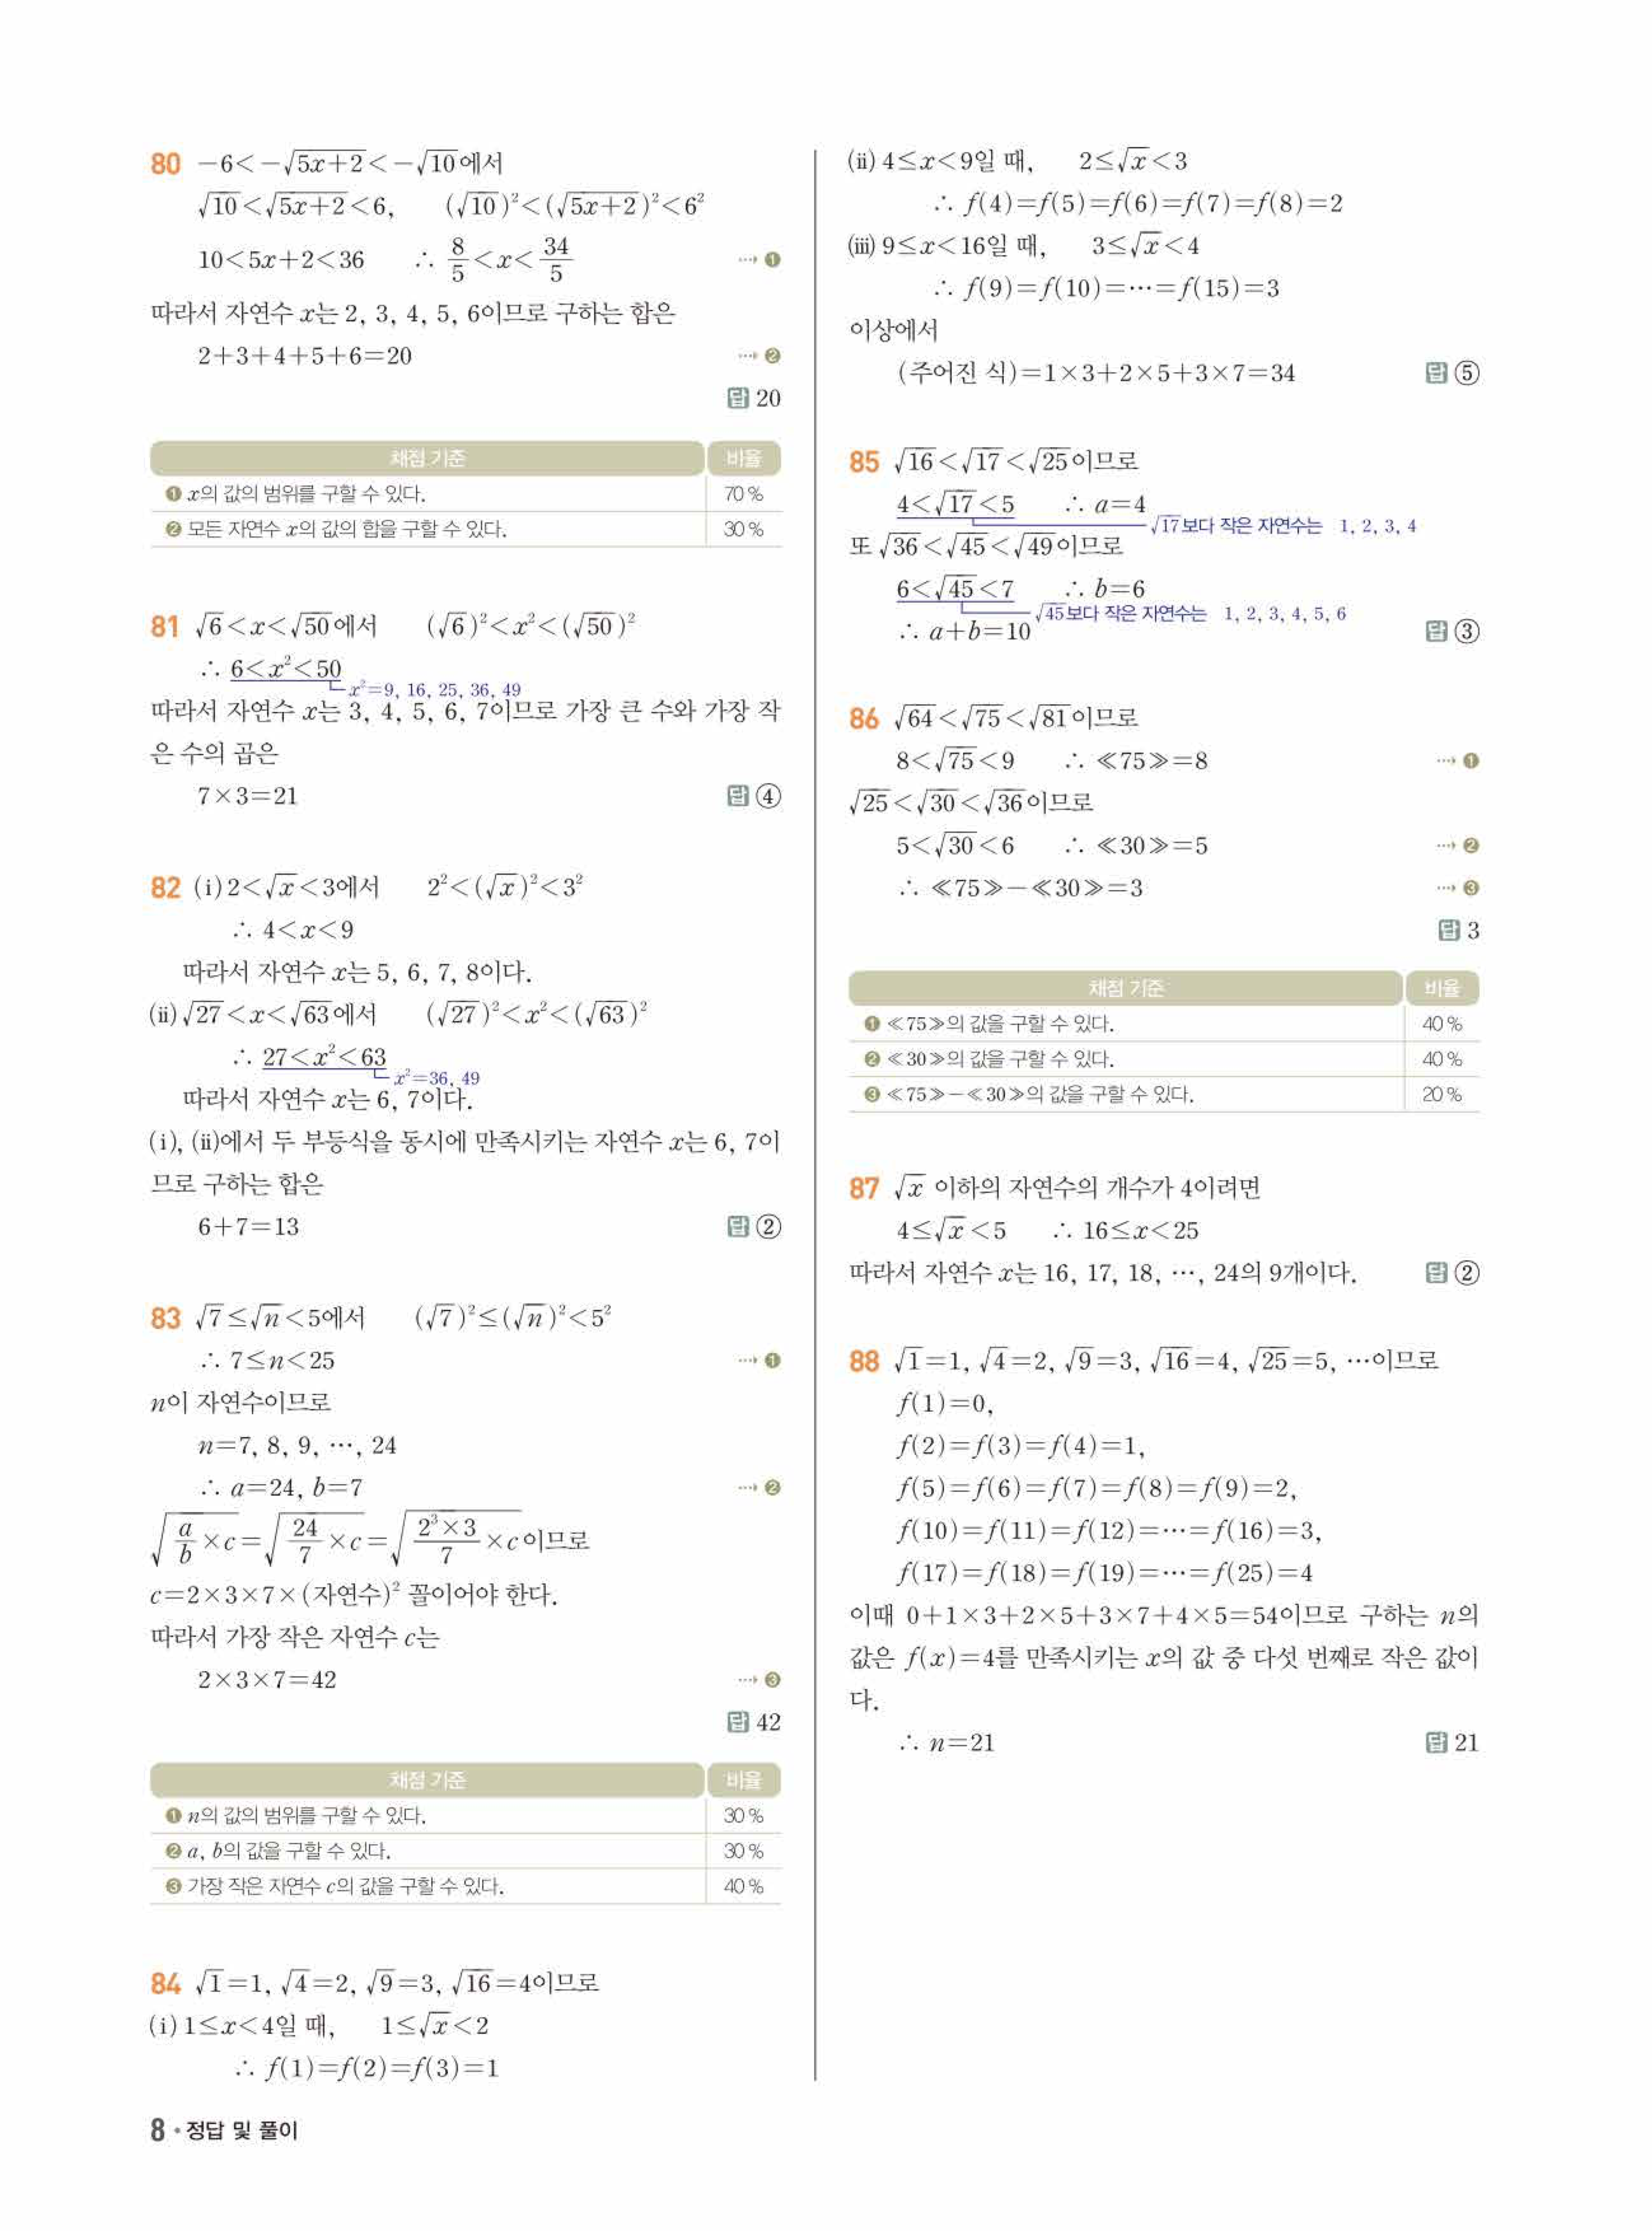 80 −6<−√(5x+2)<−√10에서
√10<√(5x+2)<6, (√10)²<(√(5x+2))²<6²
10<5x+2<36 ∴ 8/5<x<34/5 ⋯▸ ❶
따라서 자연수 x는 2, 3, 4, 5, 6이므로 구하는 합은
2+3+4+5+6=20 ⋯▸ ❷
답 20
채점 기준 비율
❶ x의 값의 범위를 구할 수 있다. 70 %
❷ 모든 자연수 x의 값의 합을 구할 수 있다. 30 %
81 √6<x<√50에서 (√6)²<x²<(√50)²
∴ 6<x²<50
x²=9, 16, 25, 36, 49
따라서 자연수 x는 3, 4, 5, 6, 7이므로 가장 큰 수와 가장 작
은 수의 곱은
7×3=21 답 ④
82 (ⅰ) 2<√x<3에서 2²<(√x)²<3²
∴ 4<x<9
따라서 자연수 x는 5, 6, 7, 8이다.
(ⅱ) √27<x<√63에서 (√27)²<x²<(√63)²
∴ 27<x²<63
x²=36, 49
따라서 자연수 x는 6, 7이다.
(ⅰ), (ⅱ)에서 두 부등식을 동시에 만족시키는 자연수 x는 6, 7이
므로 구하는 합은
6+7=13 답 ②
83 √7≤√n<5에서 (√7)²≤(√n)²<5²
∴ 7≤n<25 ⋯▸ ❶
n이 자연수이므로
n=7, 8, 9, ⋯, 24
∴ a=24, b=7 ⋯▸ ❷
√(a/b×c)=√(24/7×c)=√((2³×3)/7×c)이므로
c=2×3×7×(자연수)² 꼴이어야 한다.
따라서 가장 작은 자연수 c는
2×3×7=42 ⋯▸ ❸
답 42
채점 기준 비율
❶ n의 값의 범위를 구할 수 있다. 30 %
❷ a, b의 값을 구할 수 있다. 30 %
❸ 가장 작은 자연수 c의 값을 구할 수 있다. 40 %
84 √1=1, √4=2, √9=3, √16=4이므로
(ⅰ) 1≤x<4일 때, 1≤√x<2
∴ f(1)=f(2)=f(3)=1
(ⅱ) 4≤x<9일 때, 2≤√x<3
∴ f(4)=f(5)=f(6)=f(7)=f(8)=2
(ⅲ) 9≤x<16일 때, 3≤√x<4
∴ f(9)=f(10)=⋯=f(15)=3
이상에서
(주어진 식)=1×3+2×5+3×7=34 답 ⑤
85 √16<√17<√25이므로
4<√17<5 ∴ a=4
√17보다 작은 자연수는 1, 2, 3, 4
또 √36<√45<√49이므로
6<√45<7 ∴ b=6
√45보다 작은 자연수는 1, 2, 3, 4, 5, 6
∴ a+b=10 답 ③
86 √64<√75<√81이므로
8<√75<9 ∴ ≪75≫=8 ⋯▸ ❶
√25<√30<√36이므로
5<√30<6 ∴ ≪30≫=5 ⋯▸ ❷
∴ ≪75≫−≪30≫=3 ⋯▸ ❸
답 3
채점 기준 비율
❶ ≪75≫의 값을 구할 수 있다. 40 %
❷ ≪30≫의 값을 구할 수 있다. 40 %
❸ ≪75≫−≪30≫의 값을 구할 수 있다. 20 %
87 √x 이하의 자연수의 개수가 4이려면
4≤√x<5 ∴ 16≤x<25
따라서 자연수 x는 16, 17, 18, ⋯, 24의 9개이다. 답 ②
88 √1=1, √4=2, √9=3, √16=4, √25=5, ⋯이므로
f(1)=0,
f(2)=f(3)=f(4)=1,
f(5)=f(6)=f(7)=f(8)=f(9)=2,
f(10)=f(11)=f(12)=⋯=f(16)=3,
f(17)=f(18)=f(19)=⋯=f(25)=4
이때 0+1×3+2×5+3×7+4×5=54이므로 구하는 n의
값은 f(x)=4를 만족시키는 x의 값 중 다섯 번째로 작은 값이
다.
∴ n=21 답 21
8 • 정답 및 풀이